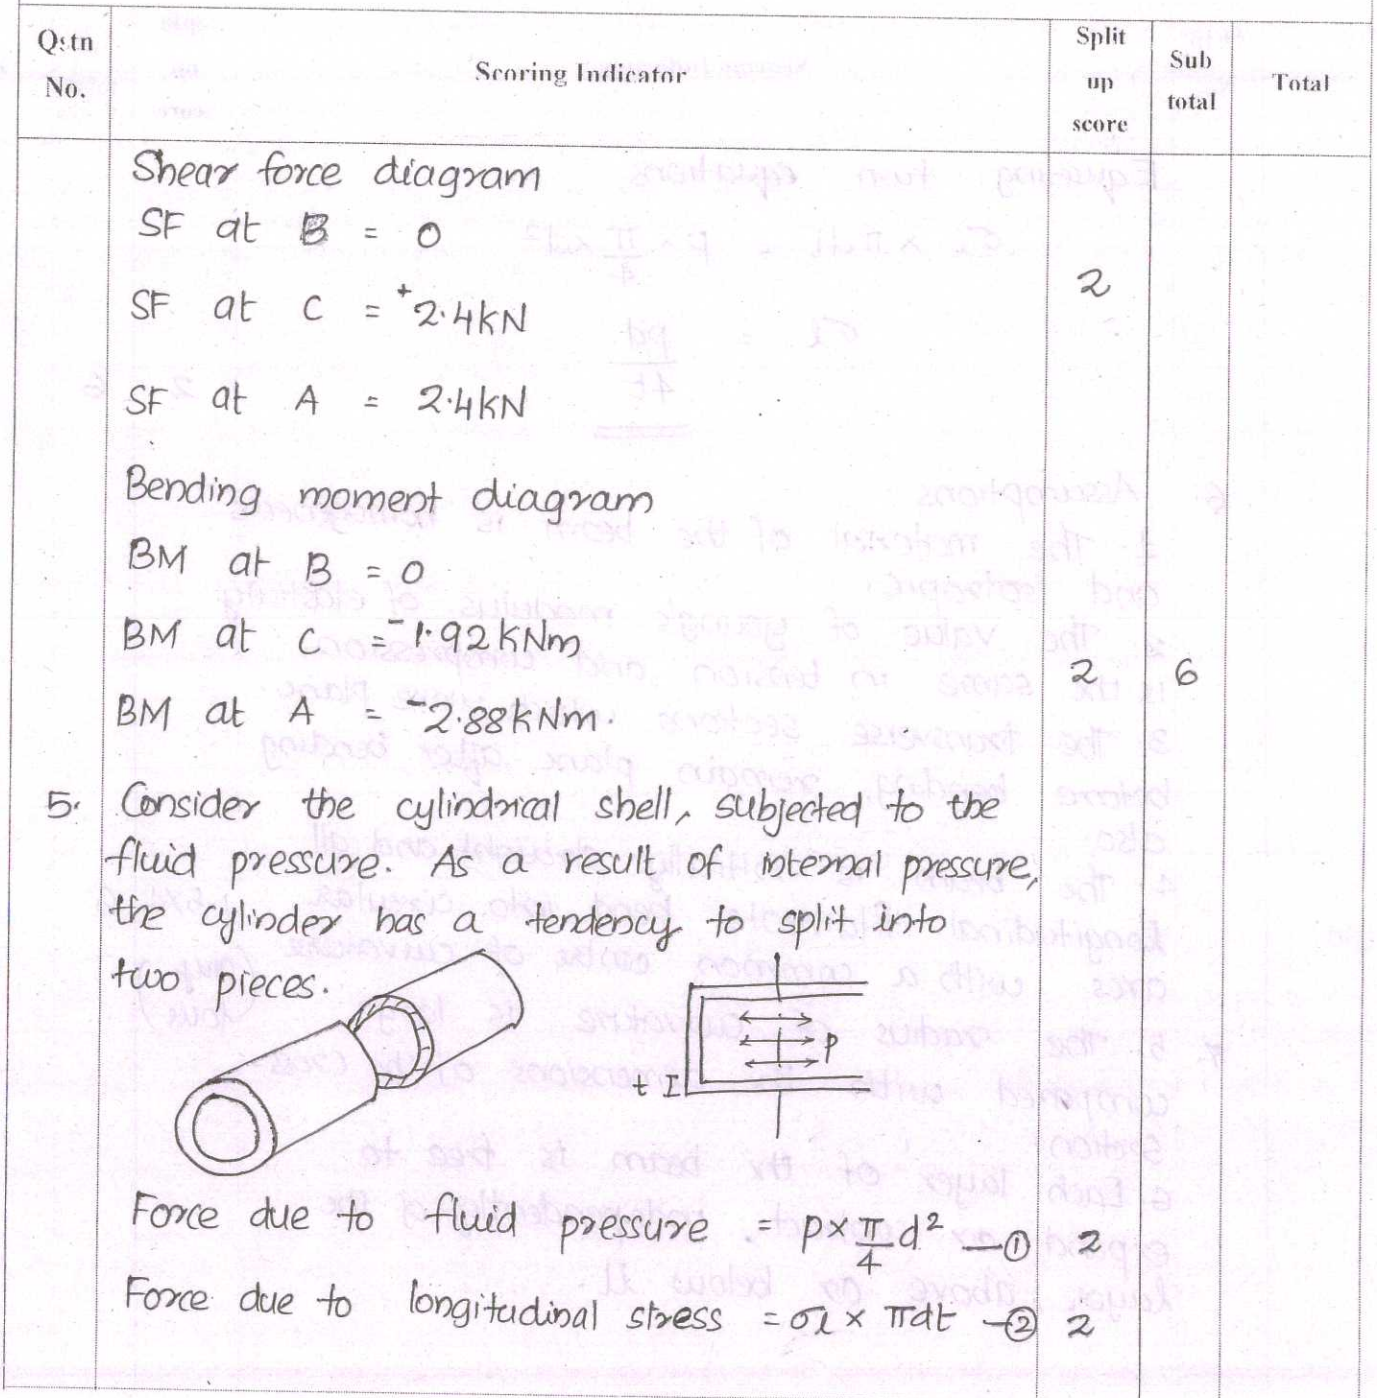 Qstn No.
Scoring Indicator
Split up score
Sub total
Total
Shear force diagram
SF at B = 0
SF at C = +2.4kN
2
SF at A = 2.4kN
Bending moment diagram
BM at B = 0
BM at C = -1.92kNm
2 6
BM at A = -2.88kNm.
5. Consider the cylindrical shell, subjected to the
fluid pressure. As a result of internal pressure,
the cylinder has a tendency to split into
two pieces.
P
t I
Force due to fluid pressure = p × π/4 d² —① 2
Force due to longitudinal stress = σl × πdt —② 2